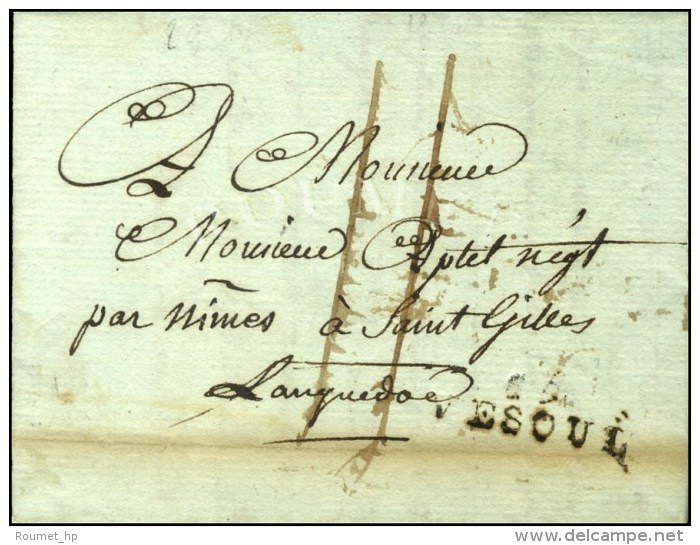 A Monsieur
Monsieur Aptel négt
par Nîmes à Saint Gilles
Languedoc
VESOUL
Roumet_hp
©delcampe.net